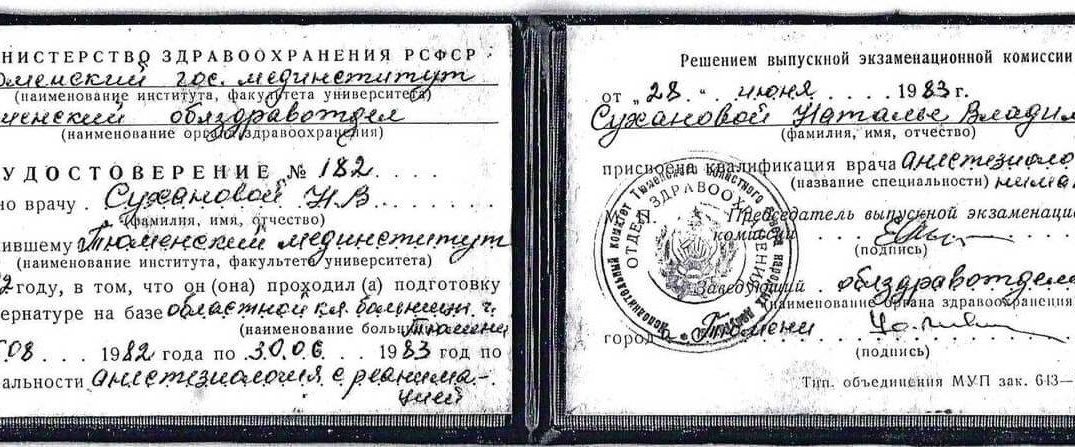 НИСТЕРСТВО ЗДРАВООХРАНЕНИЯ РСФСР
юменский гос. мединститут
(наименование института, факультета университета)
менский облздравотдел
(наименование органа здравоохранения)
УДОСТОВЕРЕНИЕ № 182
но врачу Сухановой Н.В.
(фамилия, имя, отчество)
чившему Тюменский мединститут
(наименование института, факультета университета)
2 году, в том, что он (она) проходил (а) подготовку
ернатуре на базе областной кл. больницы г.
(наименование больницы) Тюмени
08 . . . 1982 года по 30.06. . . 1983 год по
альности анестезиология с реанима-
цией
Решением выпускной экзаменационной комиссии
от „28 “ июня . . . . 1983 г.
Сухановой Наталье Владим
(фамилия, имя, отчество)
присвоена квалификация врача анестезиоло
(название специальности) нима
М. П. Председатель выпускной экзаменацио
комиссии
(подпись)
Заведующий . облздравотдел
(наименование органа здравоохранения
город Тюмени
(подпись)
Тип. объединения МУП зак. 643—
Исполнительный комитет Тюменского областного Совета народных
ОТДЕЛ ЗДРАВООХРАНЕНИЯ